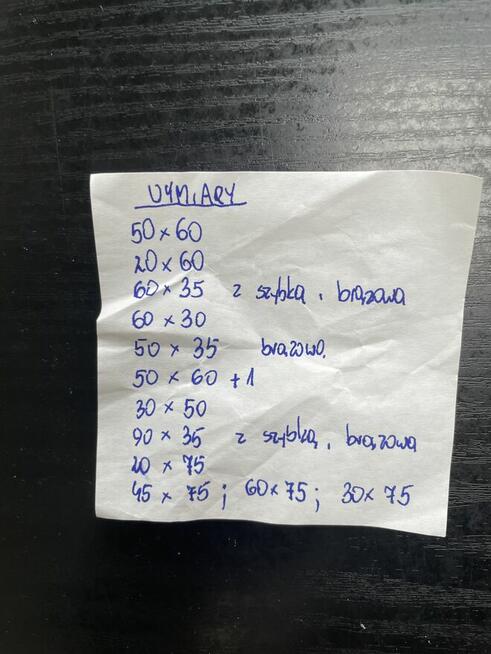 WYMIARY
50 × 60
20 × 60
60 × 35 z szybką, brązowa
60 × 30
50 × 35 brązowa
50 × 60 + 1
30 × 50
90 × 35 z szybką, brązowa
20 × 75
45 × 75 ; 60 × 75 ; 30 × 75